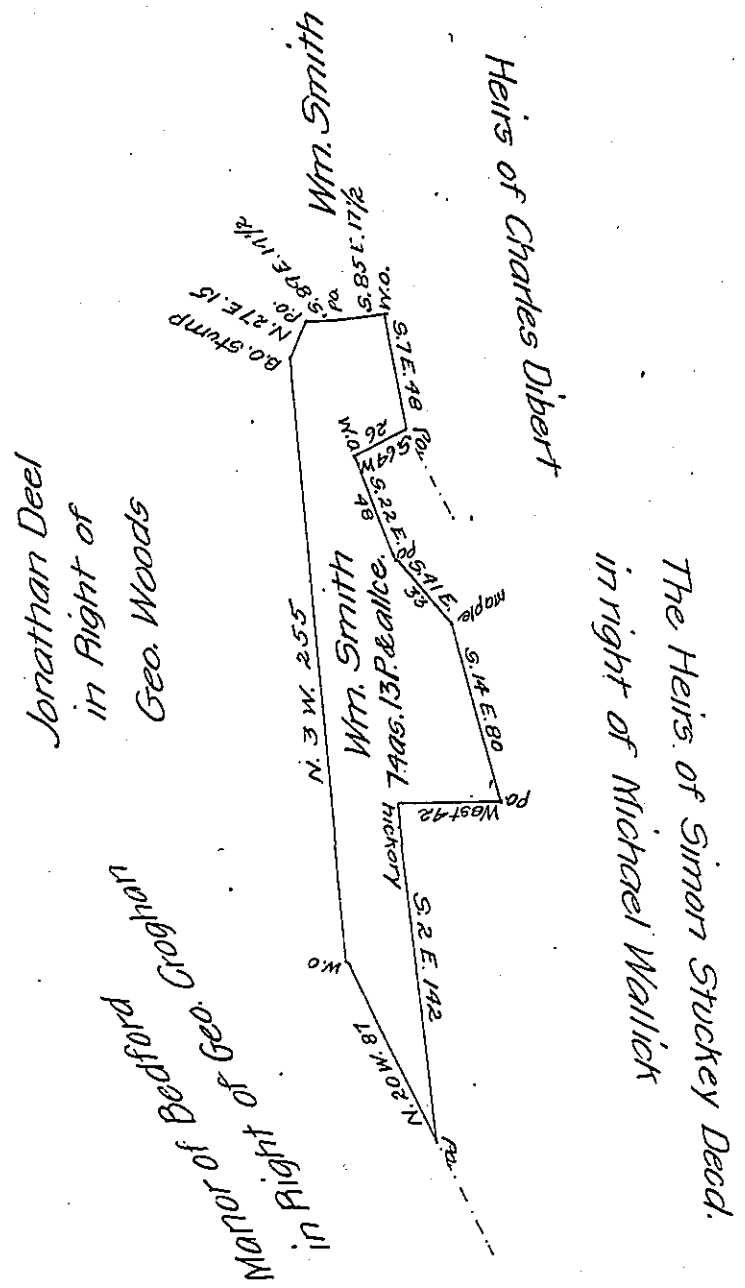 Wm. Smith
Heirs of Charles Dibert
The Heirs of Simon Stuckey Decd.
in right of Michael Wallick
Jonathan Deel
in Right of
Geo. Woods
Manor of Bedford
in Right of Geo. Croghan
Wm. Smith
74as. 13P. & allce.
B.O. Stump
N. 27 E. 15
P.O.
S. 89 E. 17 1/2
Po.
S. 85 E. 17 1/2
W.O.
S. 7 E. 48
Po.
S. 64 W
26
W.O.
S. 22 E.
48
S. 41 E.
33
Maple
S. 14 E. 80
Po.
West 42
hickory
S. 2 E. 142
Po.
N. 20 W. 87
W.O
N. 3 W. 255